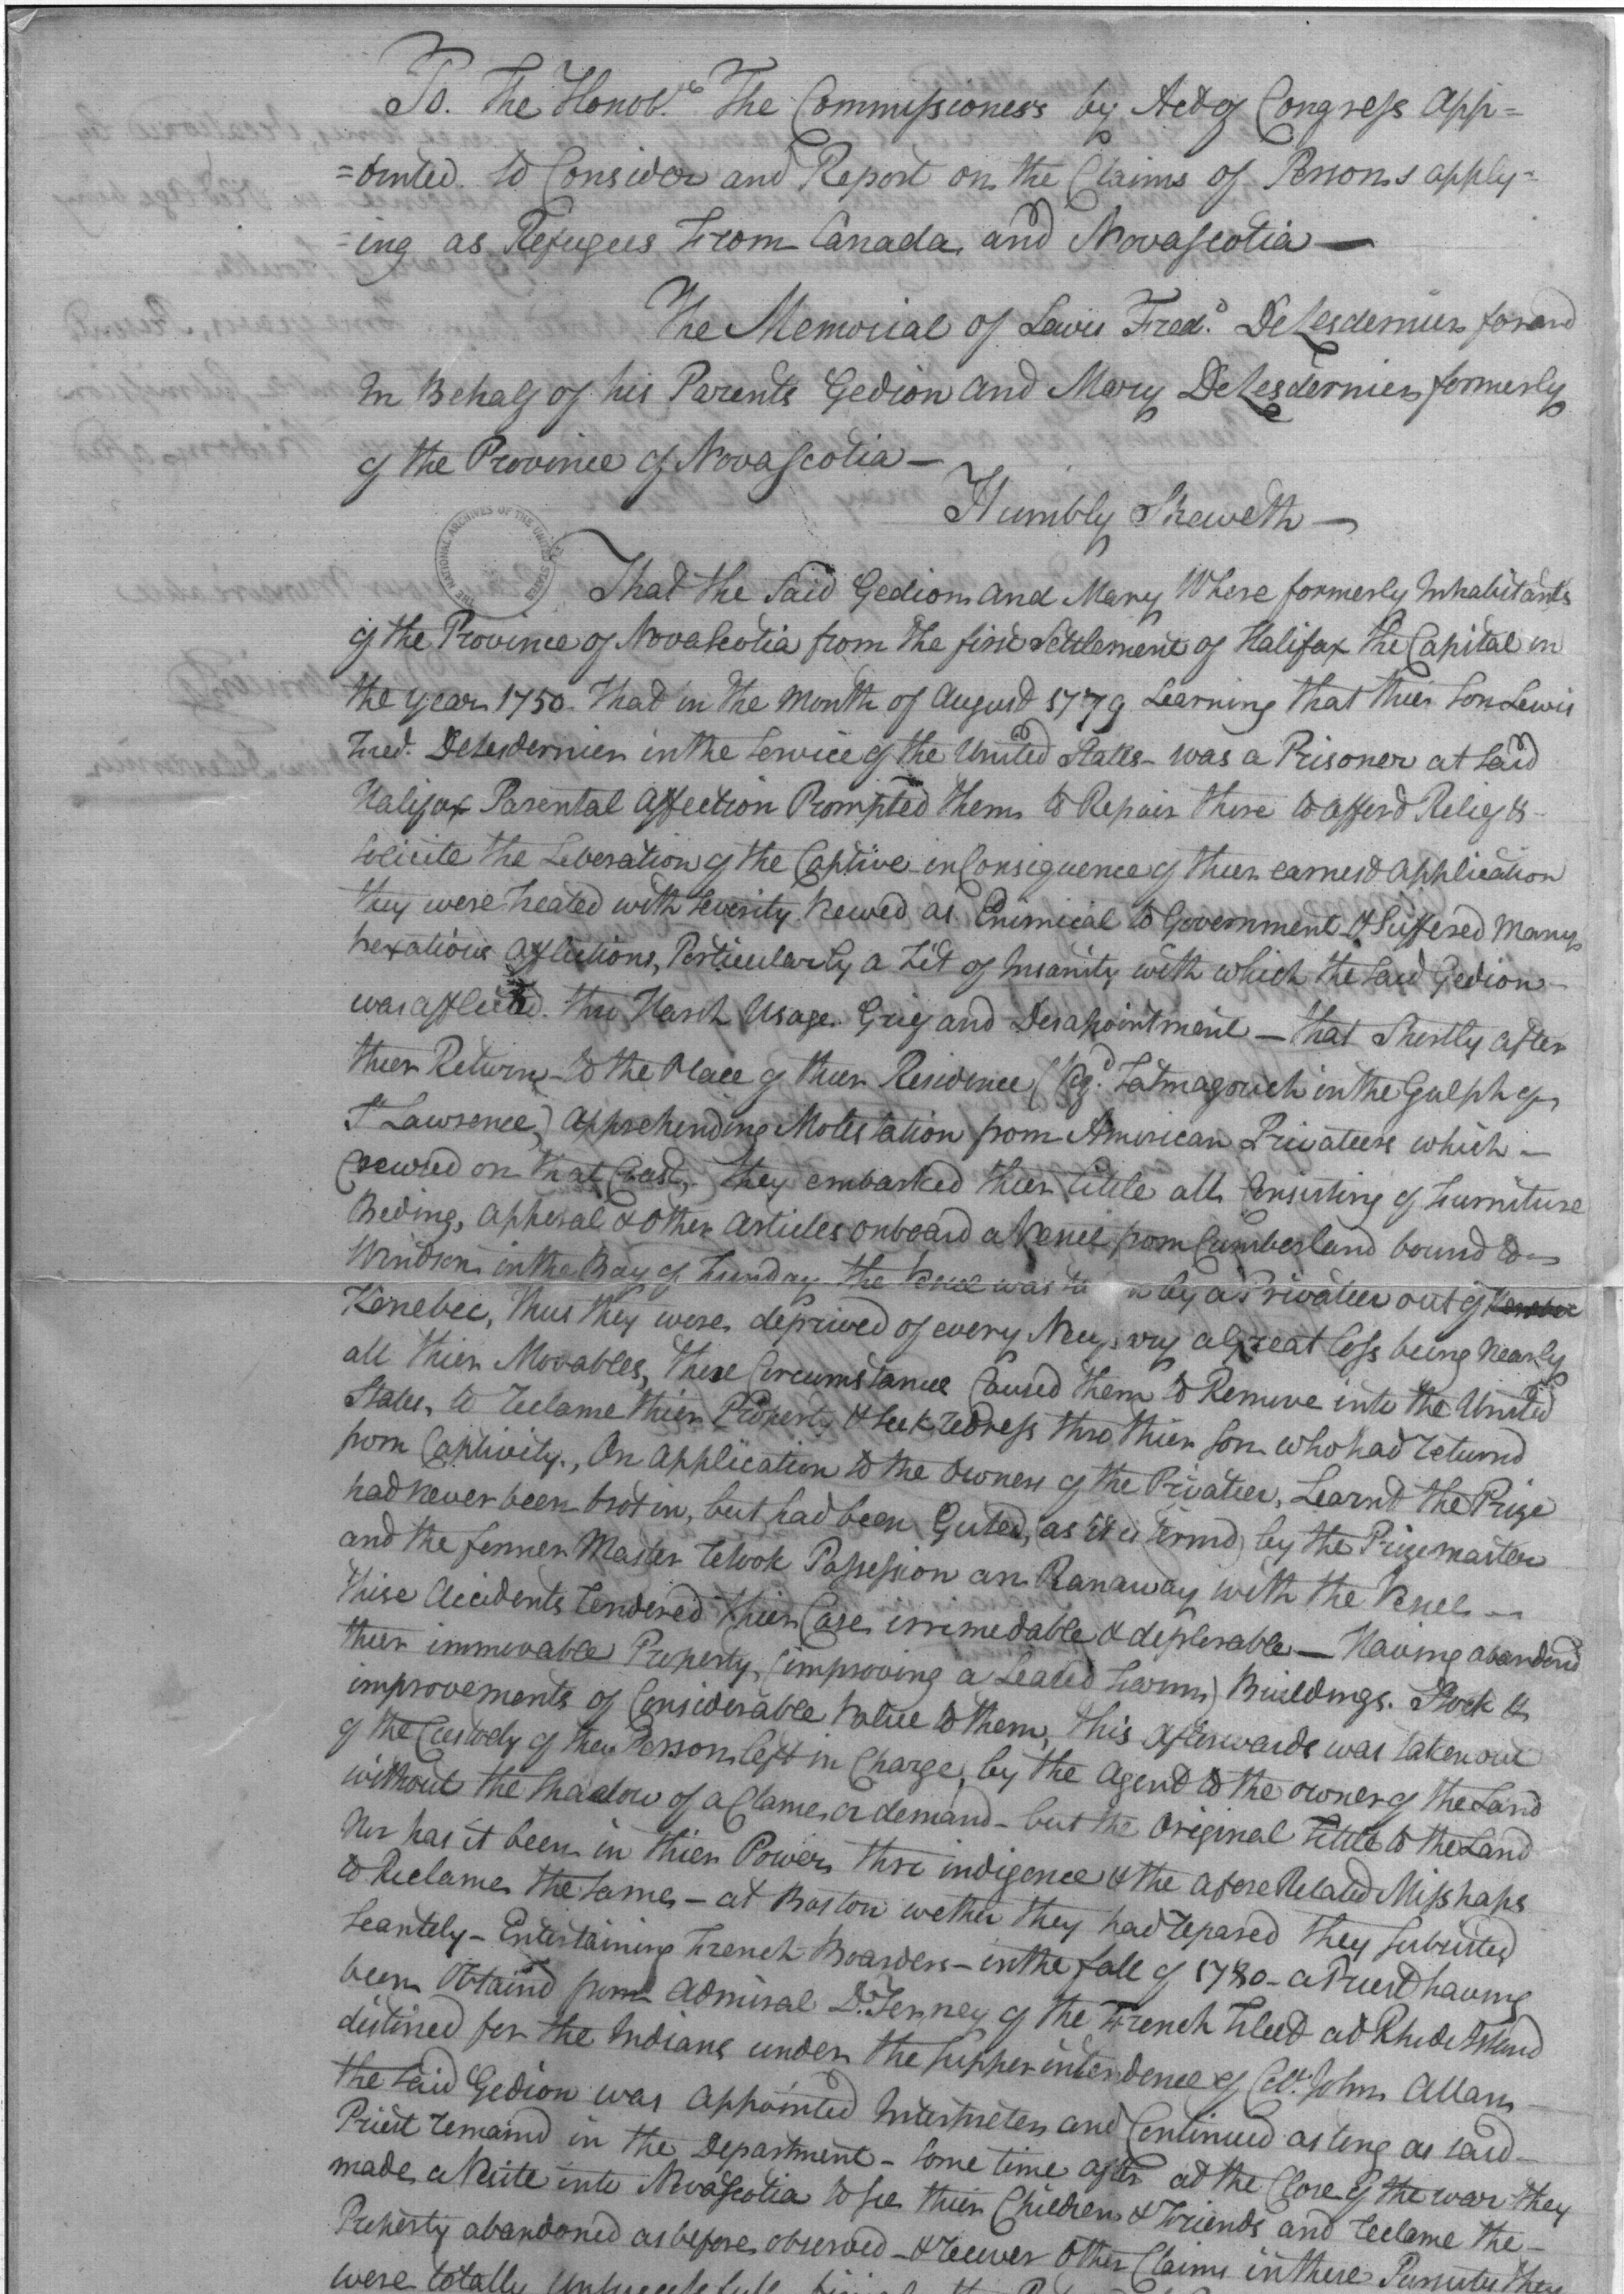 To. The Honob.le The Commissioners by Act of Congress App=
=ointed to Consider and Report on the Claims of Persons apply=
=ing as Refugees From Canada and Novascotia —
The Memorial of Lewis Fred.d DeLesdernier for and
In Behalf of his Parents Gedion and Mary DeLesdernier formerly
of the Province of Novascotia —
Humbly Sheweth —
THE NATIONAL ARCHIVES OF THE UNITED STATES
That the Said Gedion and Mary Where formerly Inhabitants
of the Province of Novascotia from the first Settlement of Halifax the Capital in
the year 1750. that in the Month of August 1779 Learning that thier Son Lewis
Fred. DeLesdernier in the Service of the United States - was a Prisoner at Said
Halifax Parental Affection Prompted them to Repair there to afford Relief &
Solicite the Liberation of the Captive in Consequence of thier earnest application
they were treated with Severity Viewed as Enimical to Government & Suffered Many
vexatious Afflictions, Perticularly a Fit of Insanity with which the Said Gedion
was afflicted. thro Harsh Usage. Grief and Desapointment — that Shortly after
thier Return to the Place of thier Residence ( Tatmagouch in the Gulph of
St Lawrence,) Apprehending Molestation from American Privateers which —
Crewsed on that Coast, they embarked thier little all Consisting of Furniture
Beding, apperal & other articles onboard a Vessel from Cumberland bound to
Windsor in the Bay of Funday the Vessel was by a Privateer out of Kenebec
Kenebec, thus they were deprived of every a great loss being Nearly
all thier Movables, these Circumstance Caused them to Remove into the United
States, to reclame thier Property & seek redress thro thier Son who had returnd
from Captivity., On Application to the Owners of the Privateer, Learnt the Prize
had never been brot in, but had been Guted, (as it is termd) by the Prizemaster
and the former Master retook Possession an Ranaway with the Vessel —
these Accidents rendered thier Case irremedable & deplorable — Having abandond
thier immovable Property, (improving a Leased Farm,) Buildings. Stock &
improvements of Considerable Value to them, this afterwards was taken out
of the Custody of the Person left in Charge, by the Agent to the owner of the Land
without the Shadow of a Clame or demand - but the Original Tittle to the Land
Nor has it been in thier Power thro indigence & the afore Related Misshaps
to Reclame the Same - at Boston wether they had repared they Subsisted
Scantely - Entertaining French Boarders - in the fall of 1780 - a Priest having
been Obtaind from Admiral D.Terney of the French Fleet at Rhode Island
distined for the Indians under the Supperintendence of Coll. John Allan
the Said Gedion was appointed Interpreter and Continued as long as said
Priest remaind in the Department - Some time after at the Close of the war they
made a Visite into Novascotia to see thier Children & Friends and reclame the
Property abandoned as before observed - & recover other Claims in these Pursuits they
were totally unsuccessfull